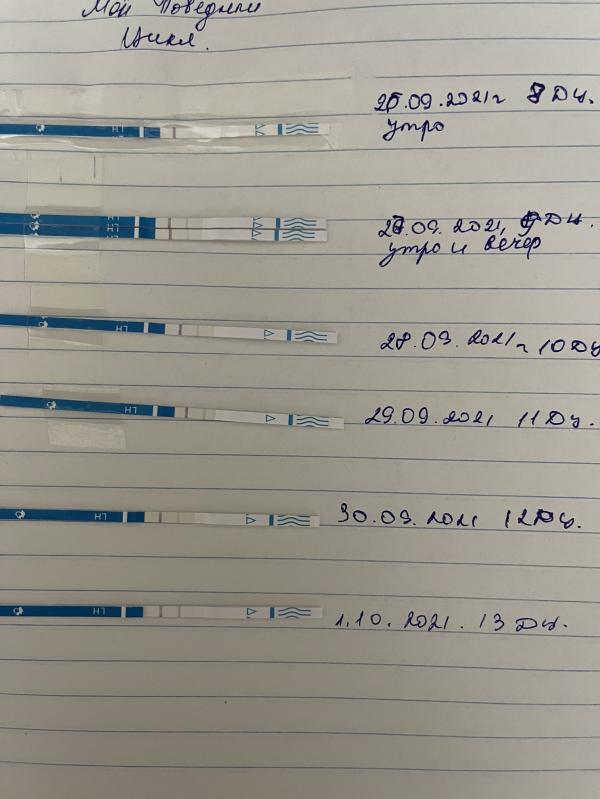 Мой Победный
Цикл.
26.09.2021г 8 Дц.
утро
27.09.2021, 9 Дц.
утро и вечер
LH
28.09.2021г 10 Дц
LH
29.09.2021 11 Дц.
LH
30.09.2021 12 Дц.
LH
1.10.2021. 13 Дц.
LH